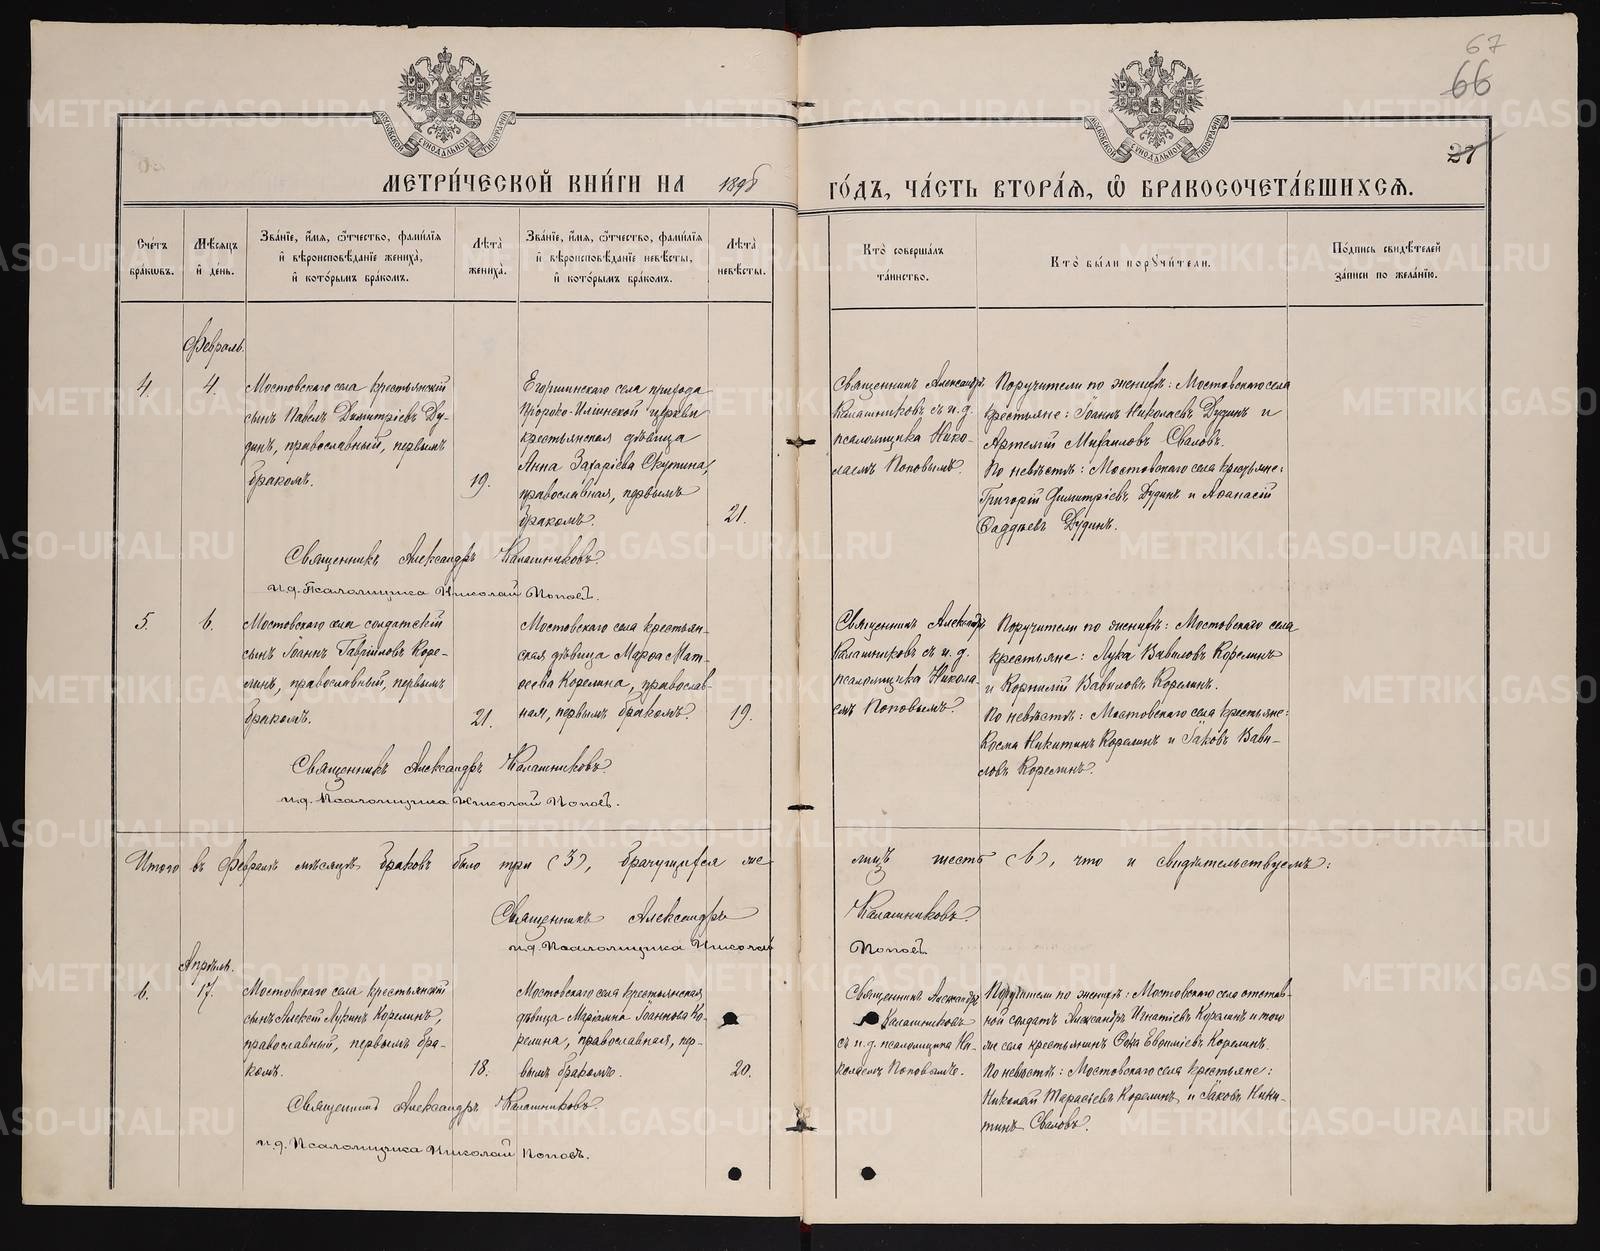 67
66
27
МЕТРИ́ЧЕСКОЙ КНИ́ГИ НА 1898 ГО́ДЪ, ЧА́СТЬ ВТОРА́Я, Ѡ БРАКОСОЧЕТА́ВШИХСЯ.
Сче́тъ бра́кѡвъ.
Мѣ́сяцъ и҆ де́нь.
Зва́нїе, и҆́мя, ѻ҆́тчество, фами́лїя и҆ вѣроисповѣ́данїе жениха̀, и҆ кото́рымъ бра́комъ.
Лѣ́та жениха̀.
Зва́нїе, и҆́мя, ѻ҆́тчество, фами́лїя и҆ вѣроисповѣ́данїе невѣ́сты, и҆ кото́рымъ бра́комъ.
Лѣ́та невѣ́сты.
Кто̀ соверша́лъ та́инство.
Кто̀ бы́ли порꙋчи́тели.
По́дпись свидѣ́телей за́писи по жела́нїю.
Февраль.
4.
4.
Мостовскаго села крестьянскій
сынъ Павелъ Димитріевъ Ду-
динъ, православный, первымъ
бракомъ.
19.
Егоршинскаго села прихода
Пророко-Илiинской церкви
крестьянская дѣвица
Анна Захаріева Скутина,
православная, первымъ
бракомъ.
21.
Священникъ Александръ
Калашниковъ съ и. д.
псаломщика Нико-
лаемъ Поповымъ.
Поручители по женихѣ: Мостовскаго села
крестьяне: Іоаннъ Николаевъ Дудинъ и
Артемій Михаиловъ Сваловъ.
По невѣстѣ: Мостовскаго села крестьяне:
Григорій Димитріевъ Дудинъ и Аѳанасій
Ѳаддѣевъ Дудинъ.
Священникъ Александръ Калашниковъ.
и.д. Псаломщика Николай Поповъ.
5.
6.
Мостовскаго села солдатскій
сынъ Іоаннъ Гавріиловъ Коре-
линъ, православный, первымъ
бракомъ.
21.
Мостовскаго села крестьян-
ская дѣвица Марѳа Мат-
ѳеева Корелина, православ-
ная, первымъ бракомъ.
19.
Священникъ Александръ
Калашниковъ съ и. д.
псаломщика Никола-
емъ Поповымъ.
Поручители по женихѣ: Мостовскаго села
крестьяне: Лука Вавиловъ Корелинъ
и Корнилій Вавиловъ Корелинъ.
По невѣстѣ: Мостовскаго села крестьяне:
Косма Никитинъ Корелинъ и Іаковъ Вави-
ловъ Корелинъ.
Священникъ Александръ Калашниковъ.
и.д. Псаломщика Николай Поповъ.
Итого въ Февралѣ мѣсяцѣ браковъ было три (3), брачущихся же лицъ шесть (6), что и свидѣтельствуемъ:
Священникъ Александръ Калашниковъ.
и.д. Псаломщика Николай Поповъ.
Апрѣль.
6.
17.
Мостовскаго села крестьянскій
сынъ Алексій Лукинъ Корелинъ,
православный, первымъ бра-
комъ.
18.
Мостовскаго села крестьянская
дѣвица Маріамна Іоаннова Ко-
релина, православная, пер-
вымъ бракомъ.
20.
Священникъ Александръ
Калашниковъ
съ и. д. псаломщика Ни-
колаемъ Поповымъ.
Поручители по женихѣ: Мостовскаго села отстав-
ной солдатъ Александръ Игнатіевъ Корелинъ и того
же села крестьянинъ Ѳока Евѳиміевъ Корелинъ.
По невѣстѣ: Мостовскаго села крестьяне:
Николай Тарасіевъ Корелинъ и Іаковъ Ники-
тинъ Сваловъ.
Священникъ Александръ Калашниковъ.
и.д. Псаломщика Николай Поповъ.